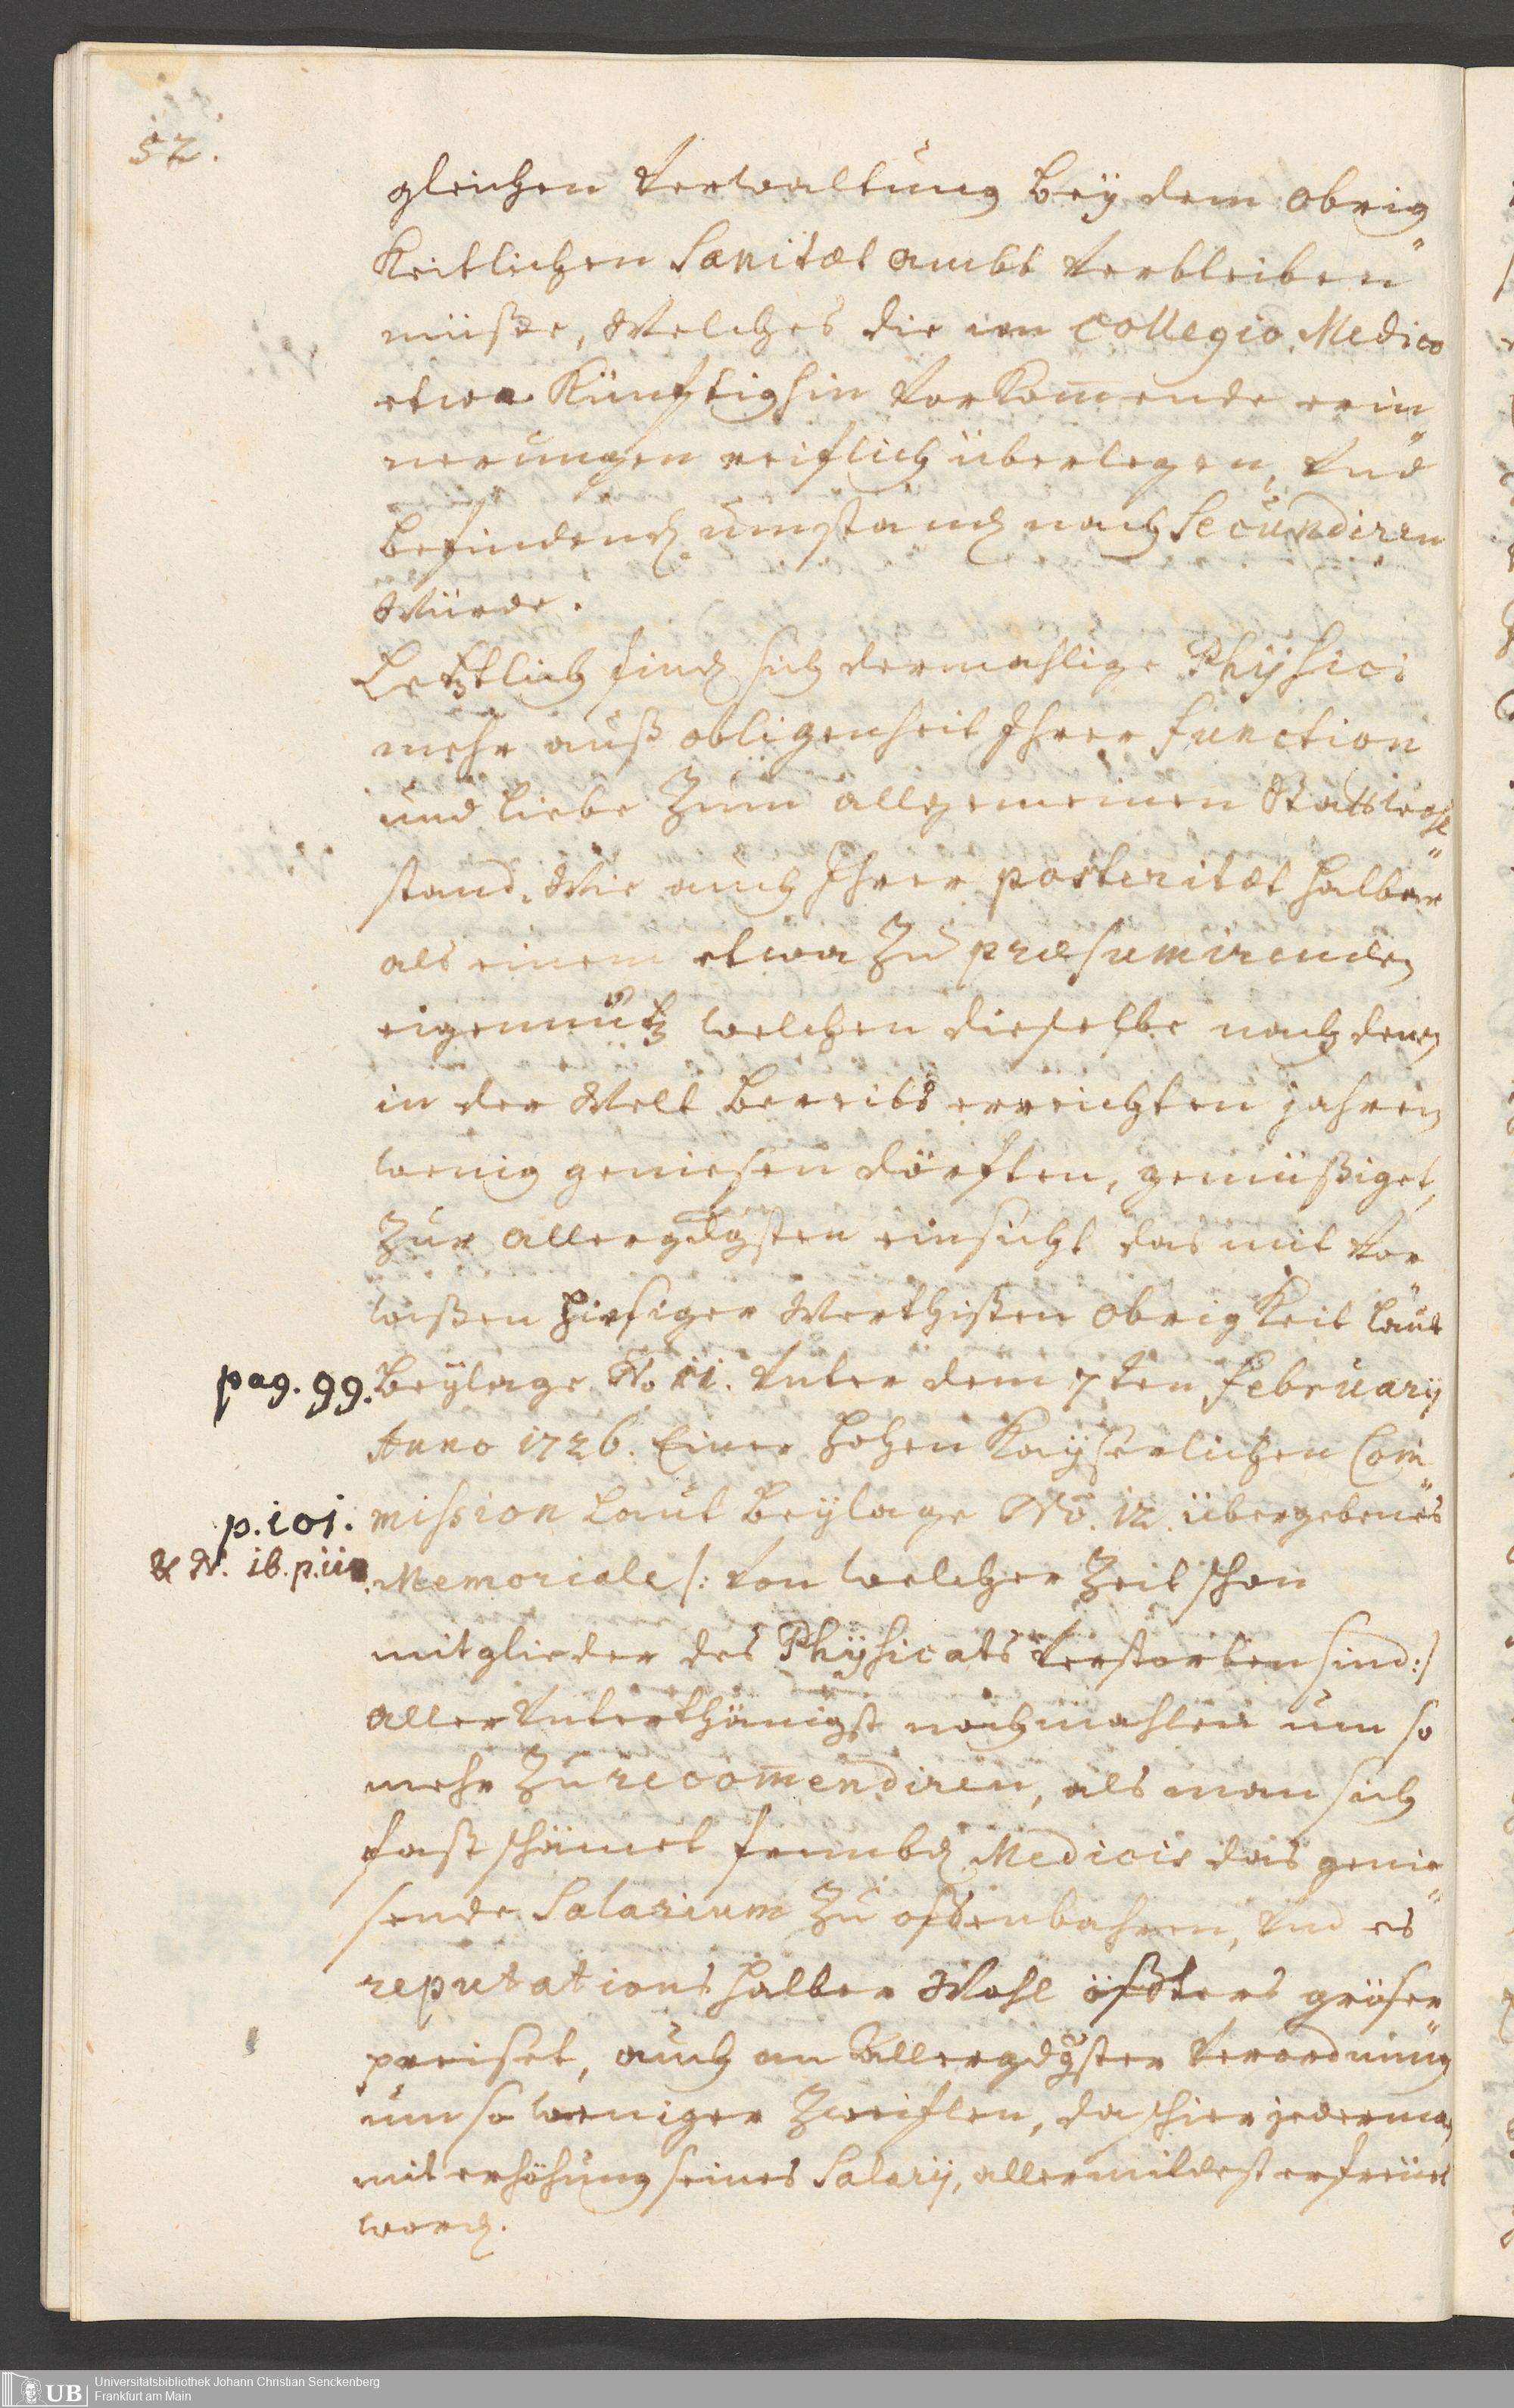 52.
gleichen Verwaltung bey dem obrig„
Keitlichen Sanitæt ambt verbleiben
müste, Welches die im Collegio Medico
etwa Künfftighin vorkom̄ende erin„
nerungen reifflich überlegen, und
befinden umständ nach Secundiren
Würde.
Letztlich find sich dermahlige Physici
mehr auß obligenheit Ihrer function
und liebe zum allgemeinen Stattswohl„
stand, Wie auch Ihrer posteritæt halber
als einem etwa zu præsumirenden
eigennutz welchen dieselbe nach denen
in der Welt bereits erreichten jahren
wenig geniesen dörfften, gemüßiget,
Zur allergdgsten einsicht das mit vor„
wißen hiesiger Werthisten obrigkeit laut
pag. 99. Beylage No. 11. unter dem 7ten February
Anno 1726. Einer hohen Kayserlichen Com„
p. 101. mission Laut Beylage No. 12. übergebenes
& N. 16. p. 11 Memoriale /: von welcher Zeit schon
mitglieder des Physicats verstorben sind :/
allerunterthänigst nochmahlen um so
mehr zu recom̄endiren, als man sich
fast schämet frembd Medicis das genie„
sende Salarium zu offenbahren, und es
reputations halber Wohl öffters gröser
preiset, auch an allergdgster Verordnung
um so weniger zweiflen, da schier jederman
mit erhöhung seines Salarij, allermildest erfreuet
word.
UB Universitätsbibliothek Johann Christian Senckenberg
Frankfurt am Main